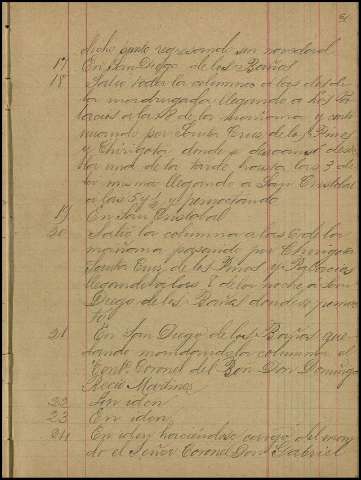 51
dicho punto regresando sin novedad
17 En San Diego de los Baños
18 Salio toda la columna a las dos de
la madrugada llegando a los Pa
lacios a las 8 de la mañana y conti
nuando por Santa Cruz de los Pinos
y Chirigota donde descansó desde
la una de la tarde hasta las 3 de
la misma llegando a San Cristobal
a las 5 y ½ y pernoctando
19 En San Cristobal
20 Salio la columna a las 6 de la
mañana pasando por Chirigota
Santa Cruz de los Pinos y Palacios
llegando a las 8 de la noche a San
Diego de los Baños donde pernoc
tó
21 En San Diego de los Baños que
dando mandando la columna el
Tente Coronel del Bon Don Domingo
Recio Martinez
22 En idem
23 En idem
24 En idem haciendose cargo del man
do el Señor Coronel Don Gabriel